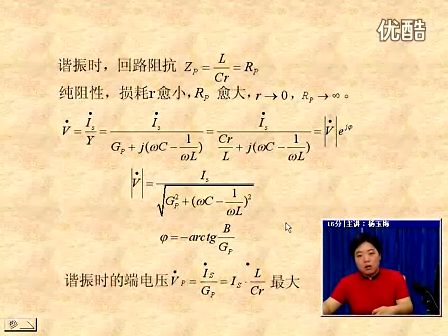 优酷
谐振时，回路阻抗 Z_P = L/(Cr) = R_P
纯阻性，损耗r愈小，R_P 愈大，r→0，R_P→∞。
V̇ = İ_s/Y = İ_s/(G_P + j(ωC − 1/(ωL))) = İ_s/(Cr/L + j(ωC − 1/(ωL))) = |V̇| e^{jφ}
|V̇| = I_s/√(G_P² + (ωC − 1/(ωL))²)
φ = −arctg B/G_P
谐振时的端电压 V̇_P = İ_S/G_P = İ_S · L/(Cr) 最大
16分|主讲：杨玉梅